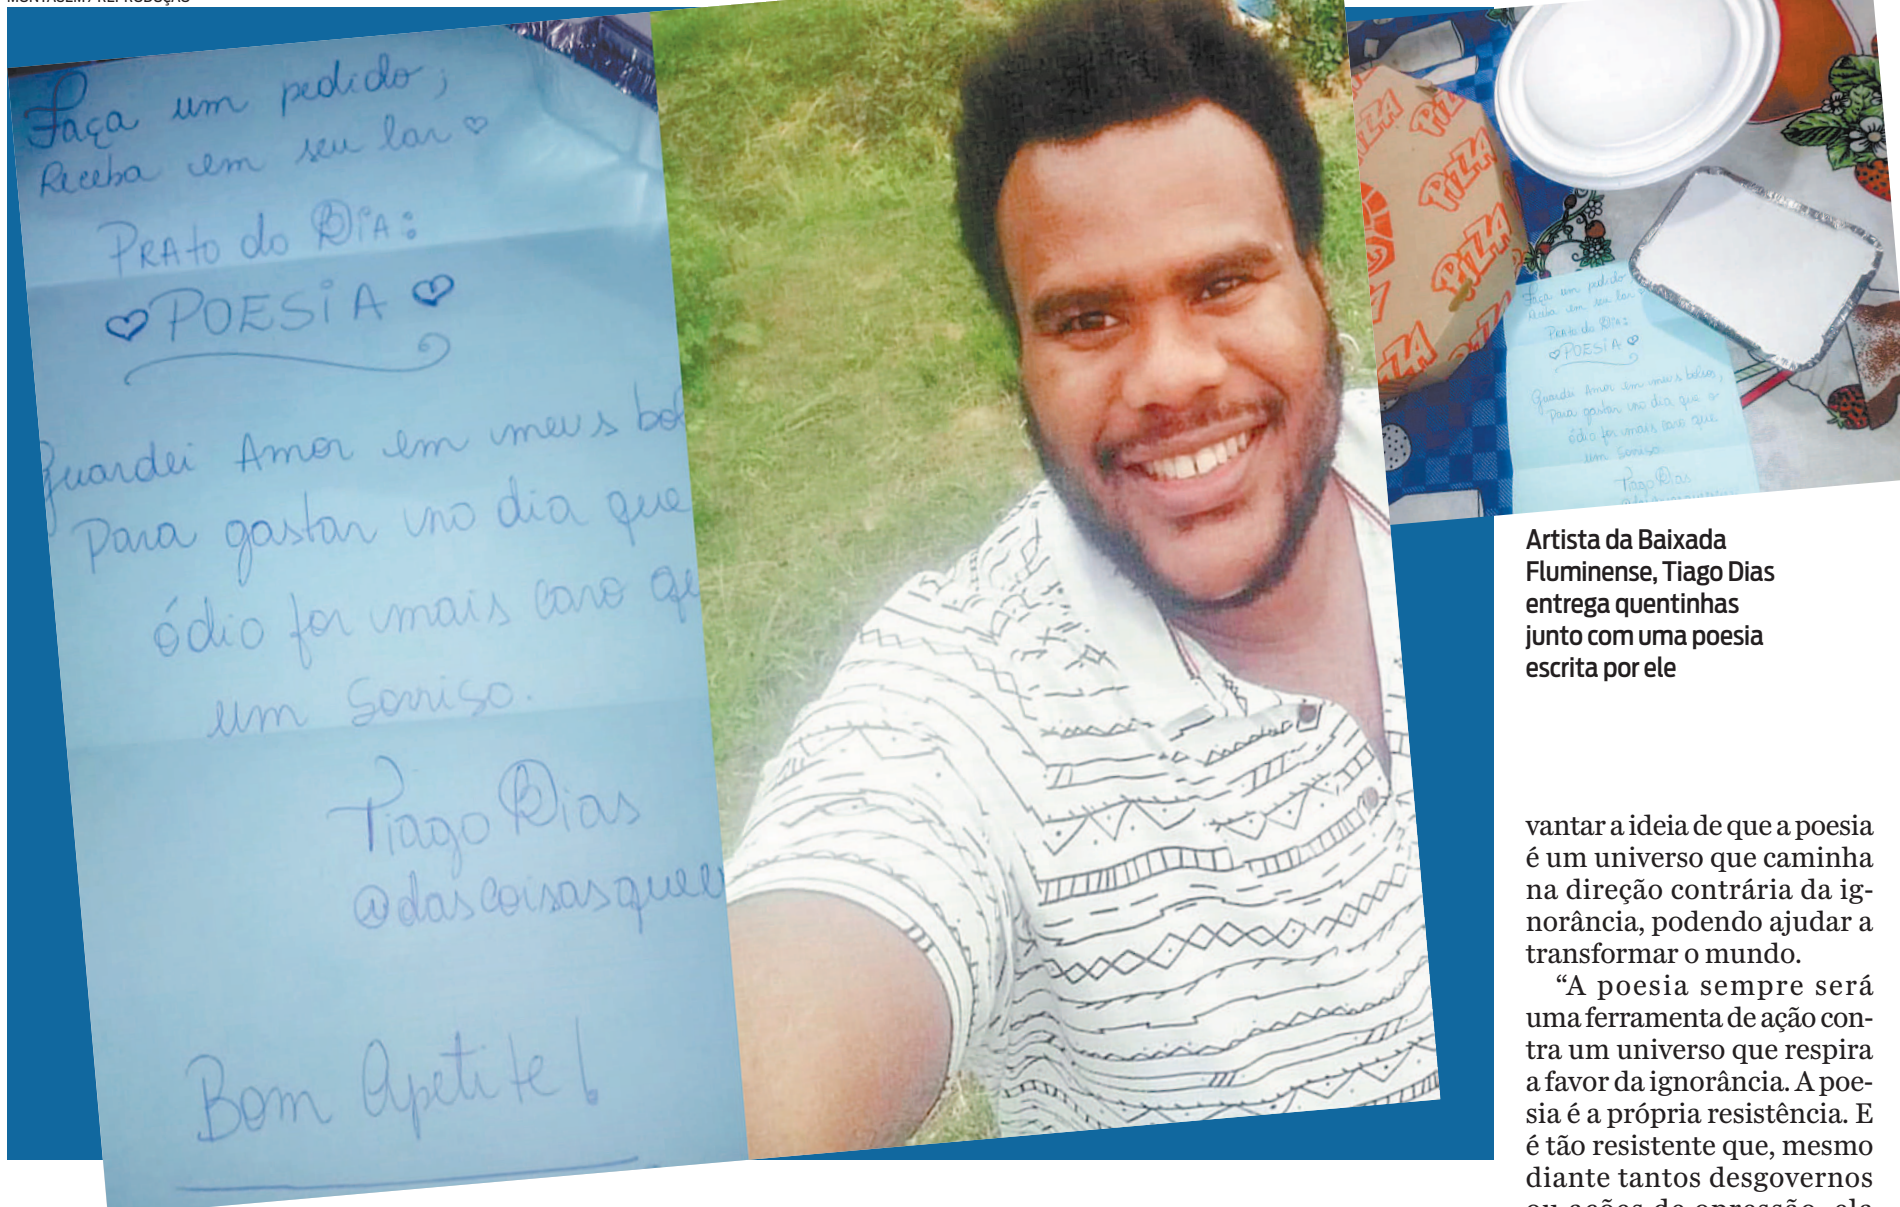 MONTAGEM / REPRODUÇÃO
Faça um pedido;
Receba em seu lar
PRATO do DIA:
POESIA
Guardei Amor em meus bol
Para gastar no dia que
ódio for mais caro qu
um sorriso.
Tiago Dias
@dascoisasque
Bom Apetite!
PIZZA
PIZZA
PIZZA
PIZZA
Faça um pedido;
Receba em seu lar
PRATO do DIA:
POESIA
Guardei Amor em meus bolsos,
Para gastar no dia que o
ódio for mais caro que
um sorriso.
Tiago Dias
Artista da Baixada
Fluminense, Tiago Dias
entrega quentinhas
junto com uma poesia
escrita por ele
vantar a ideia de que a poesia
é um universo que caminha
na direção contrária da ig-
norância, podendo ajudar a
transformar o mundo.
“A poesia sempre será
uma ferramenta de ação con-
tra um universo que respira
a favor da ignorância. A poe-
sia é a própria resistência. E
é tão resistente que, mesmo
diante tantos desgovernos
ou ações de opressão, ela